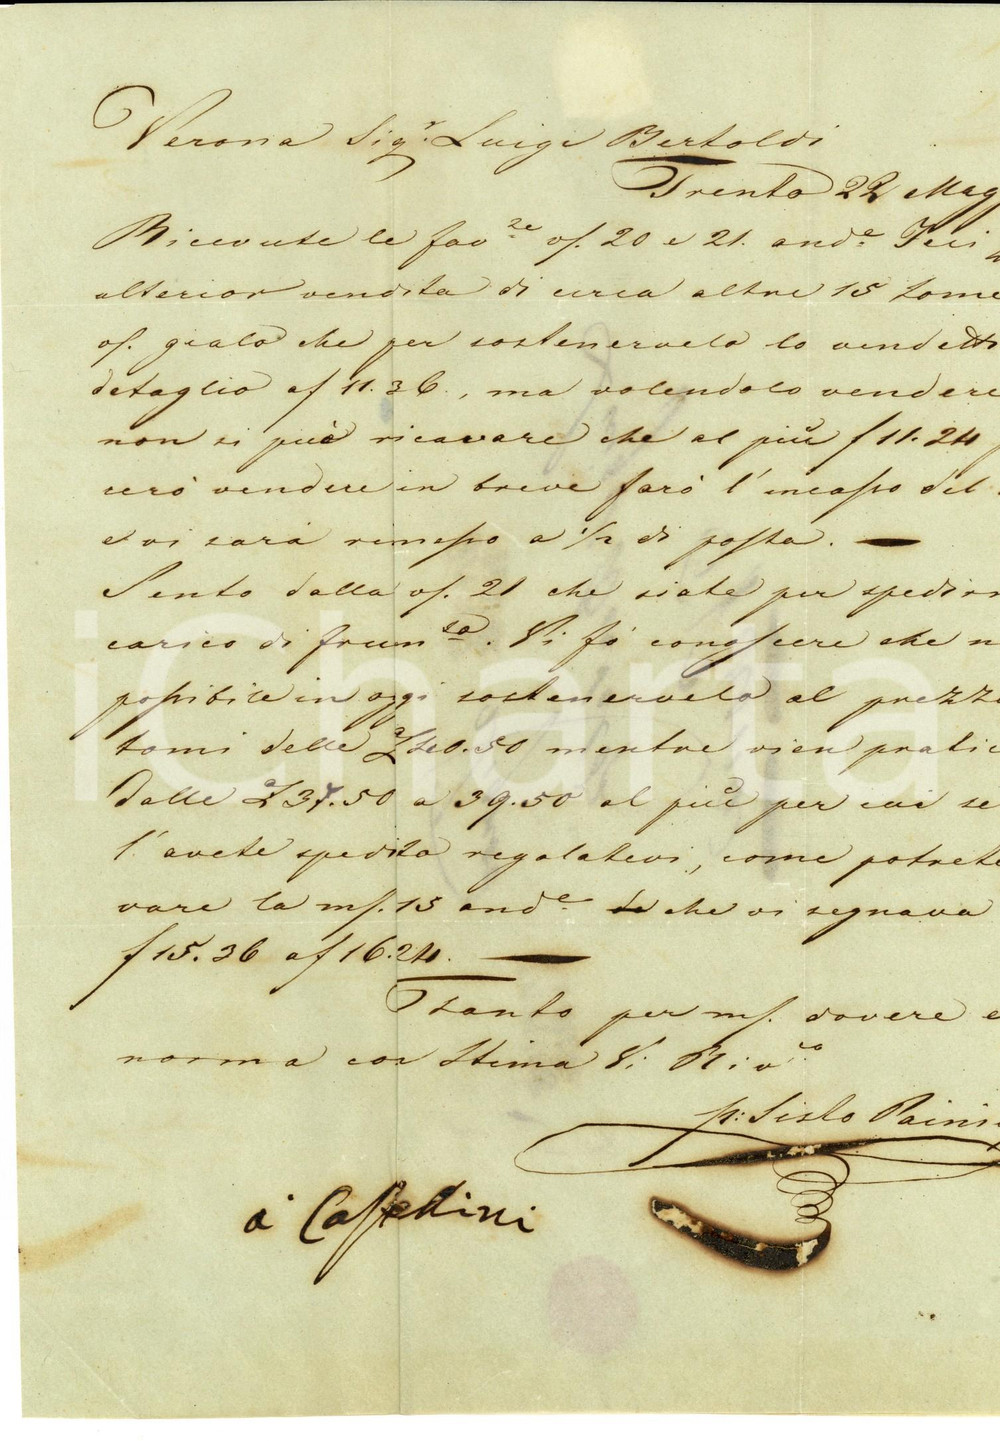 Verona Sigr. Luigi Bertoldi
Trento 22 Mag
Ricevute le favre vs. 20 e 21. ande Feci
ulterior vendita di circa altre 15 some
vs. gialo che per sostenervelo lo vendetti
detaglio a f 11.36., ma volendolo vendere
non si può ricavare che al più f 11.24
cerò vendere in breve farò l'incasso del
e vi sarà rimesso a 1/2 di posta.
Sento dalla vs. 21 che siate per spedirm
carico di frumso. Vi fò conoscere che n
possibile in oggi sostenervelo al prezzo
tomi delle £ 40.50 mentre vien pratic
dalle £ 37.50 a 39.50 al più per cui se
l'avete spedita regolatevi, come potrete
vare la ms. 15 ande che vi segnava
f 15.36 a f 16.24.
Tanto per ms. dovere e
norma con Stima Vi Rivco
p: Sisto Painis
à Cassettini
iCharta